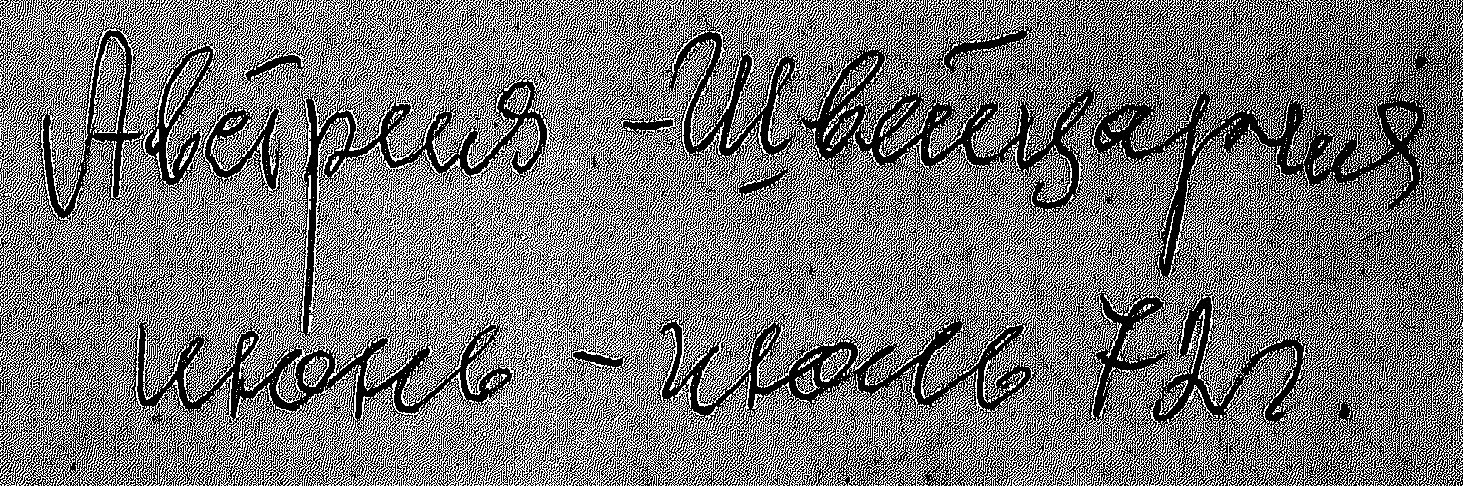 Австрия - Швейцария
июнь - июль 72г.